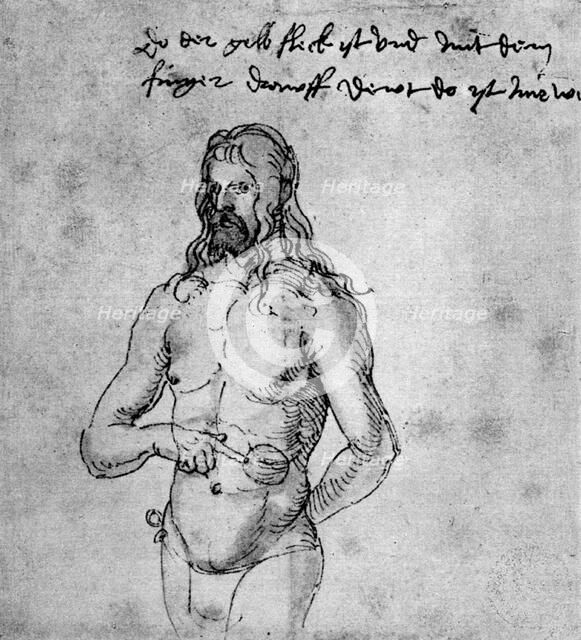 Do der gelb fleck ist vnd mit dem
finger drawff dewt do ist mir we
Heritage Heritage
Heritage © Heritage
Heritage Heritage